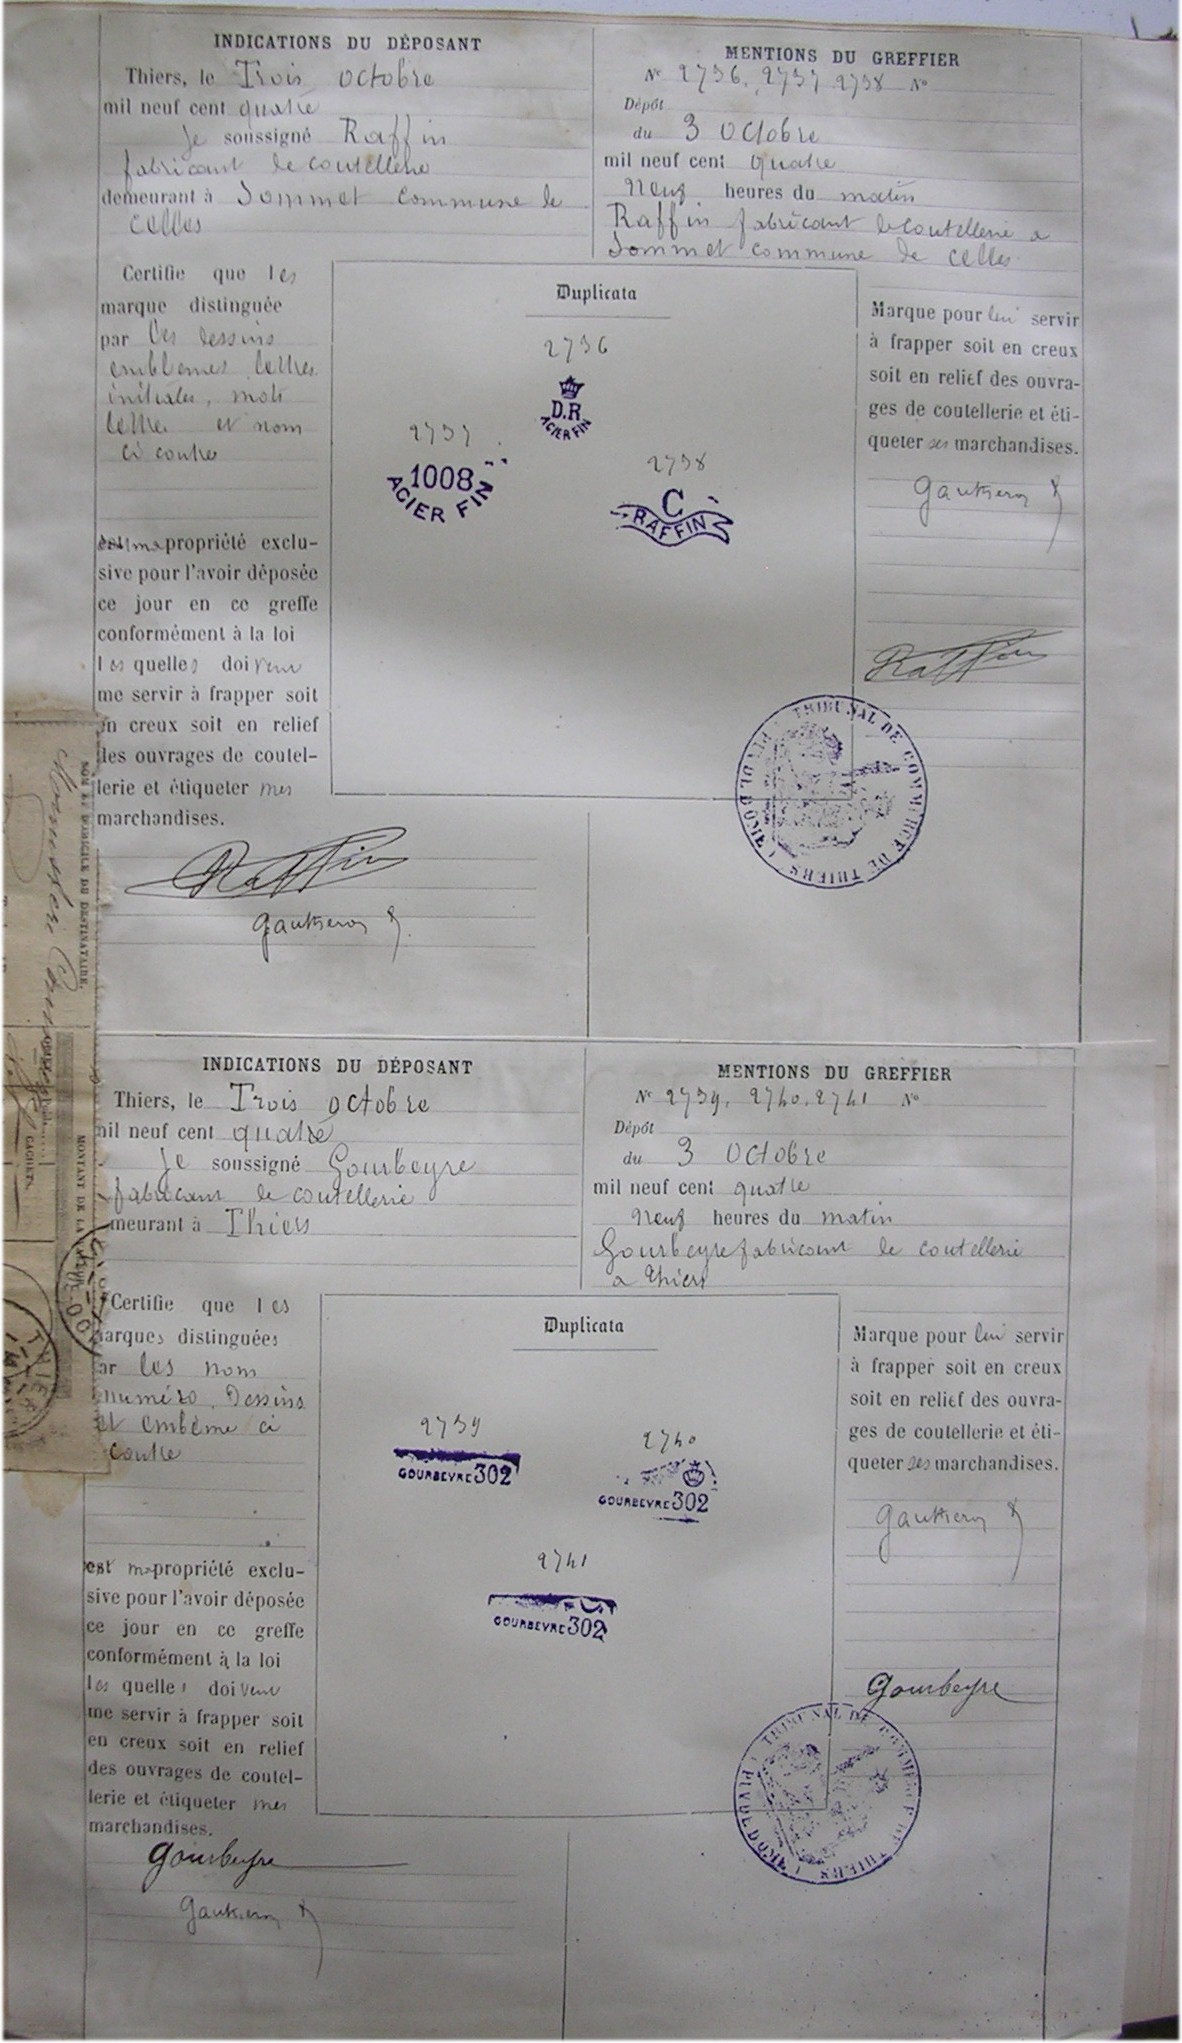 INDICATIONS DU DÉPOSANT
Thiers, le Trois octobre
mil neuf cent quatre
Je soussigné Raffin
fabricant de coutellerie
demeurant à Sommet commune de
Celles
MENTIONS DU GREFFIER
Nos 2736, 2737 2738 No
Dépôt
du 3 Octobre
mil neuf cent quatre
neuf heures du matin
Raffin fabricant de coutellerie a
Sommet commune de Celles
Certifie que les
marque distinguée
par les dessins
emblemes lettres
initiales, mots
lettre et nom
ci contre
propriété exclu-
sive pour l'avoir déposée
ce jour en ce greffe
conformément à la loi
les quelles doivent
me servir à frapper soit
en creux soit en relief
des ouvrages de coutel-
lerie et étiqueter mes
marchandises.
Raffin
Gautheron
Duplicata
2736
D.R
ACIER FIN
2737
1008
ACIER FIN
2738
C
RAFFIN
Marque pour lui servir
à frapper soit en creux
soit en relief des ouvra-
ges de coutellerie et éti-
queter ses marchandises.
Gautheron
Raffin
TRIBUNAL DE COMMERCE DE THIERS (PUY DE DÔME)
NOM ET DOMICILE DU DESTINATAIRE.
MONTANT DE LA
CACHET
THIERS
INDICATIONS DU DÉPOSANT
Thiers, le Trois octobre
mil neuf cent quatre
Je soussigné Gourbeyre
fabricant de coutellerie
meurant à Thiers
MENTIONS DU GREFFIER
Nos 2739, 2740, 2741 No
Dépôt
du 3 Octobre
mil neuf cent quatre
neuf heures du matin
Gourbeyre fabricant de coutellerie
a Thiers
Certifie que les
arques distinguées
ar les nom
numéro, Dessins
et embème ci
contre
est ma propriété exclu-
sive pour l'avoir déposée
ce jour en ce greffe
conformément à la loi
les quelles doivent
me servir à frapper soit
en creux soit en relief
des ouvrages de coutel-
lerie et étiqueter mes
marchandises.
Gourbeyre
Gautheron
Duplicata
2739
GOURBEYRE 302
2740
GOURBEYRE 302
2741
GOURBEYRE 302
Marque pour lui servir
à frapper soit en creux
soit en relief des ouvra-
ges de coutellerie et éti-
queter ses marchandises.
Gautheron
Gourbeyre
TRIBUNAL DE COMMERCE DE THIERS (PUY DE DOME)